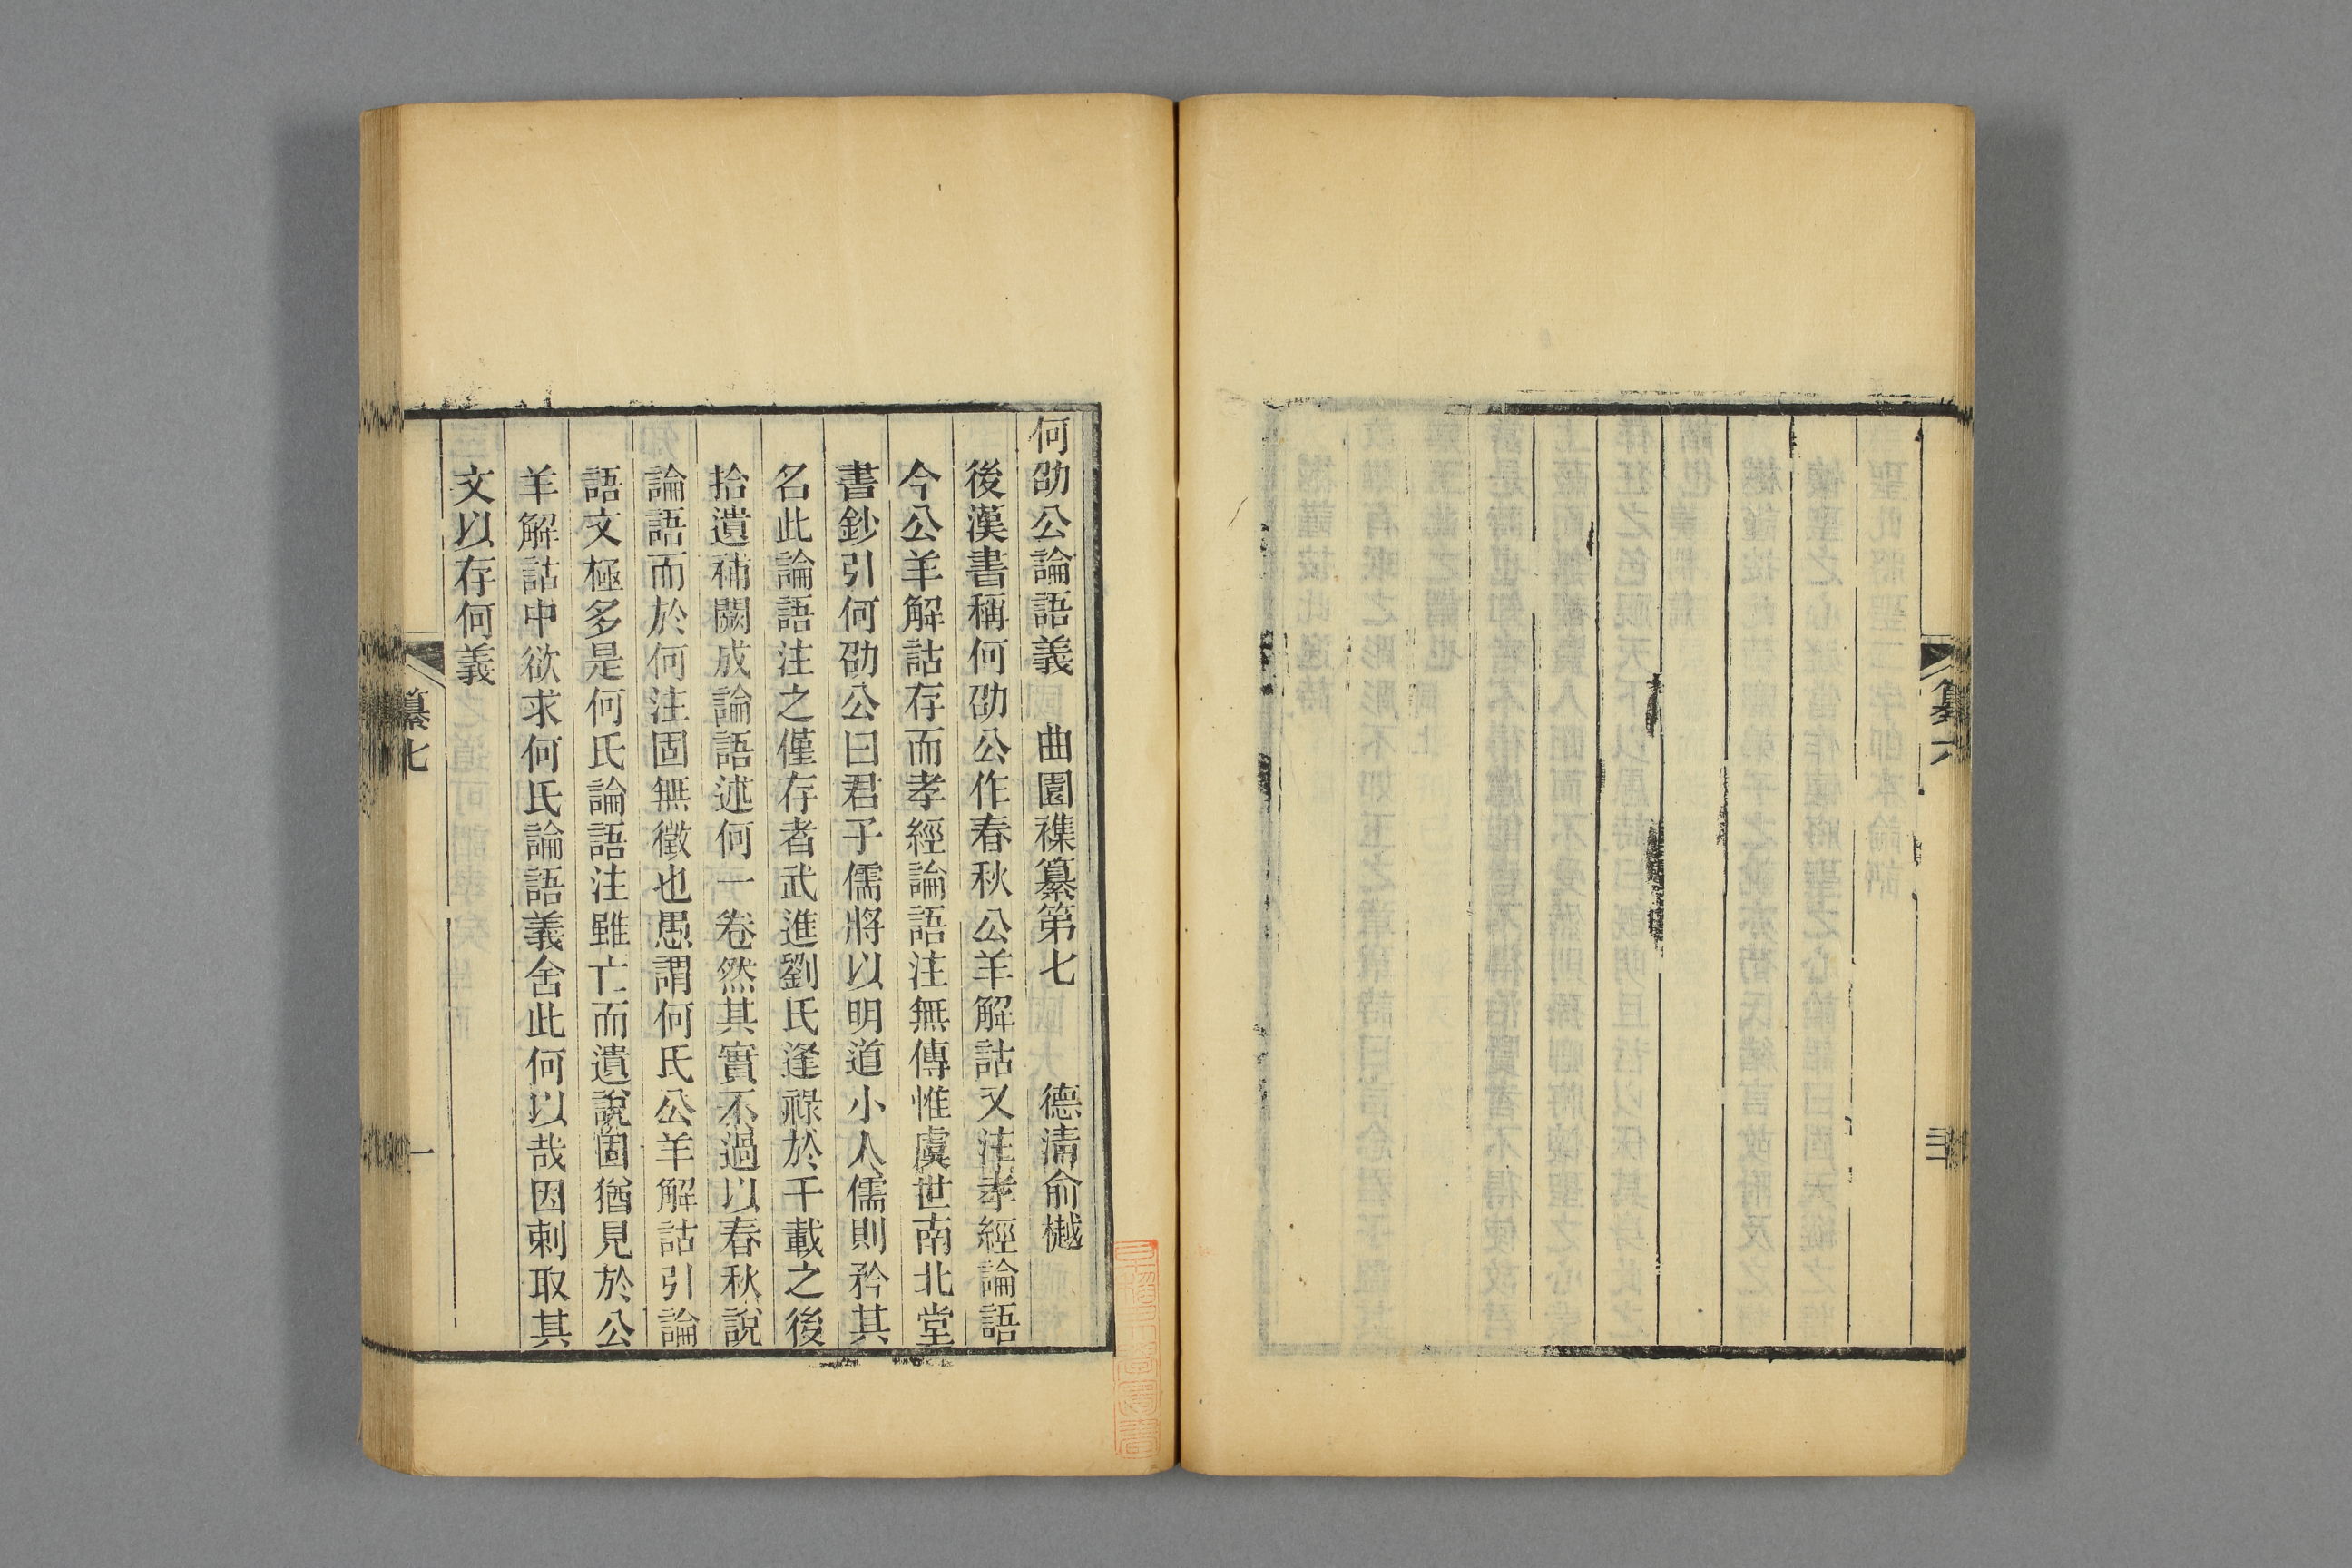 何劭公論語義　曲園襍纂第七　德清俞樾
後漢書稱何劭公作春秋公羊解詁又注孝經論語
今公羊解詁存而孝經論語注無傳惟虞世南北堂
書鈔引何劭公曰君子儒將以明道小人儒則矜其
名此論語注之僅存者武進劉氏逢祿於千載之後
拾遺補闕成論語述何一卷然其實不過以春秋說
論語而於何注固無徵也愚謂何氏公羊解詁引論
語文極多是何氏論語注雖亡而遺說固猶見於公
羊解詁中欲求何氏論語義舍此何以哉因刺取其
文以存何義
纂七
一